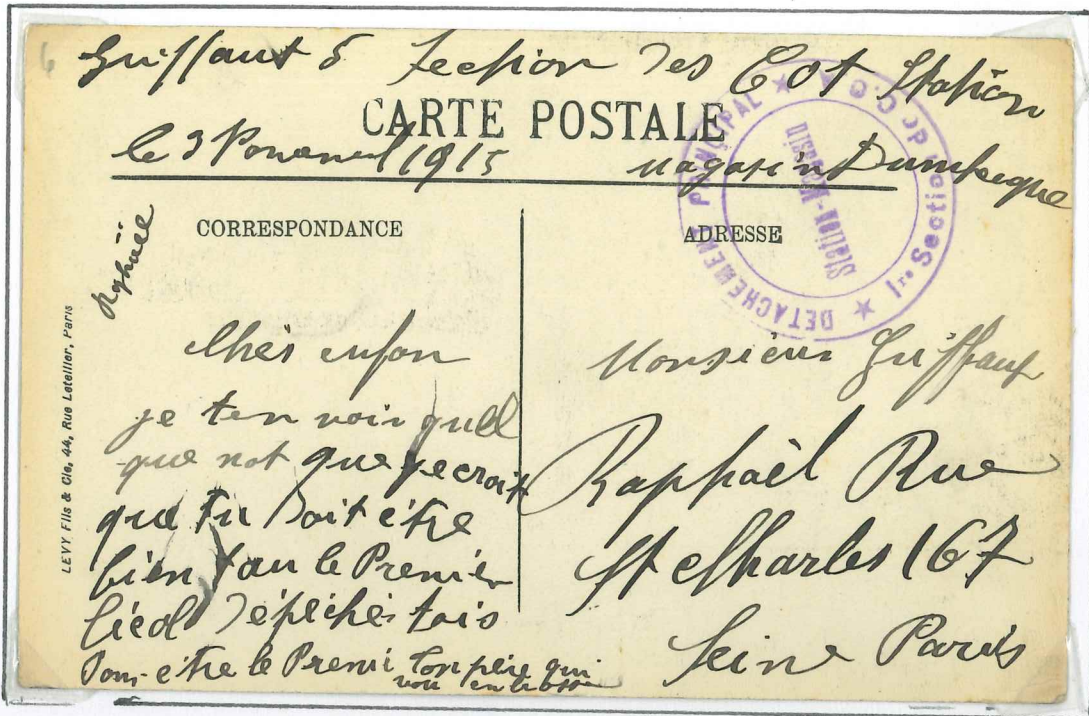 Griffaut 5 Section des COA Station
CARTE POSTALE
le 3 1915 Magasin Dunkerque
DÉTACHEMENT PRINCIPAL ★ 1re Section de C.O.A ★
Station-Magasin
Raphaël
CORRESPONDANCE
ADRESSE
LEVY Fils & Cie, 44, Rue Letellier, Paris
Chés enfan
je ten voir quel
que not que je croit
que tu doit être
bien tau le Premier
dépéchés tois
Pour être le Premi ton père qui
vou embrasse
Monsieur Griffaut
Raphaël Rue
St Charles 167
Seine Paris